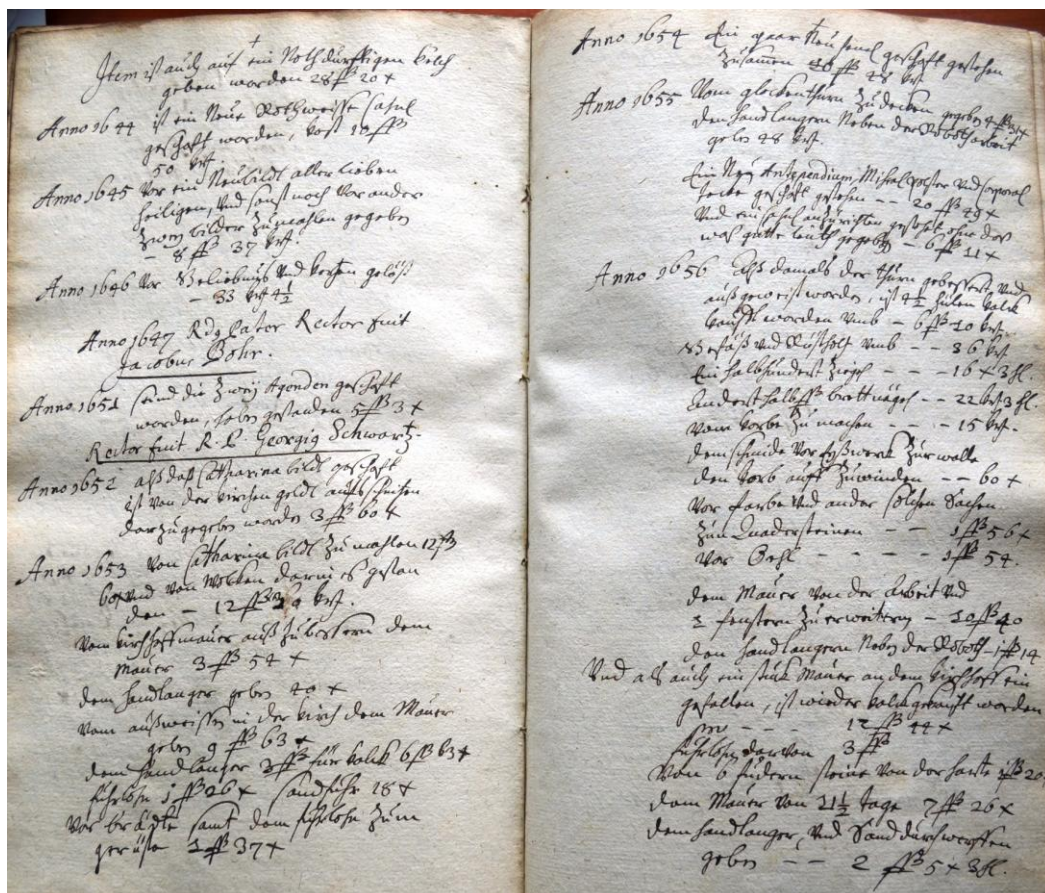 Item ist auch auf ein Nothdurfftigen Kelch
geben worden 28 fß 20 x
Anno 1644 ist ein Neue Rothweisse Casul
geschafft worden, kost 10 fß
50 kr.
Anno 1645 Vor ein Neu bildt aller lieben
heiligen, Vnd sonst noch Vor ander
Zwey bilder Zumahlen gegeben
- 8 fß 37 kr.
Anno 1646 Vor Vnd kertzen gelöst
- 33 kr 4½
Anno 1647 Pater Rector fuit
Jacobus Bohr.
Anno 1651 seind die Zwey Agenden geschafft
worden, haben gestanden 5 fß 3 x
Rector fuit R. P. Georgig Schwartz.
Anno 1652 alß daß Catharina bildt geschafft
ist Von der Kirchen geldt
darzu gegeben worden 3 fß 60 x
Anno 1653 Von Catharina bildt Zu mahlen 12 fß
60 x Vnd Von Wolcken darin es gestan
den - 12 fß kr.
Vom Kirchhoffmauer auß Zubessern dem
Maurer 3 fß 54 x
dem handlanger geben 40 x
Vom außweissen in der Kirch dem Maurer
geben 9 fß 63 x
dem handlanger 2 fß für Kalck 6 fß 63 x
fuhrlohn 1 fß 26 x Sandfuhr 18 x
Vor brädter samt dem fuhrlohn Zum
gerüste 1 fß 37 x
Anno 1654 Ein paar Neu geschafft gestehen
Zusamen 36 fß 28 kr.
Anno 1655 Vom glockenthurn Zudecken gegeben 4 fß
den handlangern Neben der Roboth arbeit
geben 48 kr.
Ein Neu Antependium, Misal Vnd Corporal
geschafft gestehen -- 20 fß 49 x
Vnd ein Casul anzurichten gestehet ohne das
was gutte leuth gegeben - 6 fß 11 x
Anno 1656 Alß damals der thurn gebessert Vnd
außgeweist worden, ist 4½ Kalck
kaufft worden Vmb - 6 fß 10 kr.
Vnd Rüstholtz Vmb -- 36 kr.
Ein halbhundert Ziegel --- 16 x 3 hl.
Anderthalb ß brettnägel -- 22 kr 3 hl.
Vom Korbe Zu machen --- 15 kr.
dem schmide Vor Zur walle
den Korb auff Zuwinden -- 60 x
Vor farbe Vnd ander solchen Sachen
Zun Quadersteinen -- 1 fß 56 x
Vor Oehl ----- 1 fß 54.
dem Maurer Von der Arbeit Vnd
fenstern Zuerweittern - 10 fß 40
den handlangern Neben der Roboth - 1 fß 14
Vnd als auch ein stück Mauer an dem Kirchhoff ein
gefallen, ist wieder Kalck gebraucht worden
--- 12 fß 44 x
fuhrlohn darvon 3 fß
Von 6 fudern steine Von der 20
dem Maurer Von 11½ tage 7 fß 26 x
dem handlanger, Vnd Sand durchwerffen
geben -- 2 fß 5 x 3 hl.